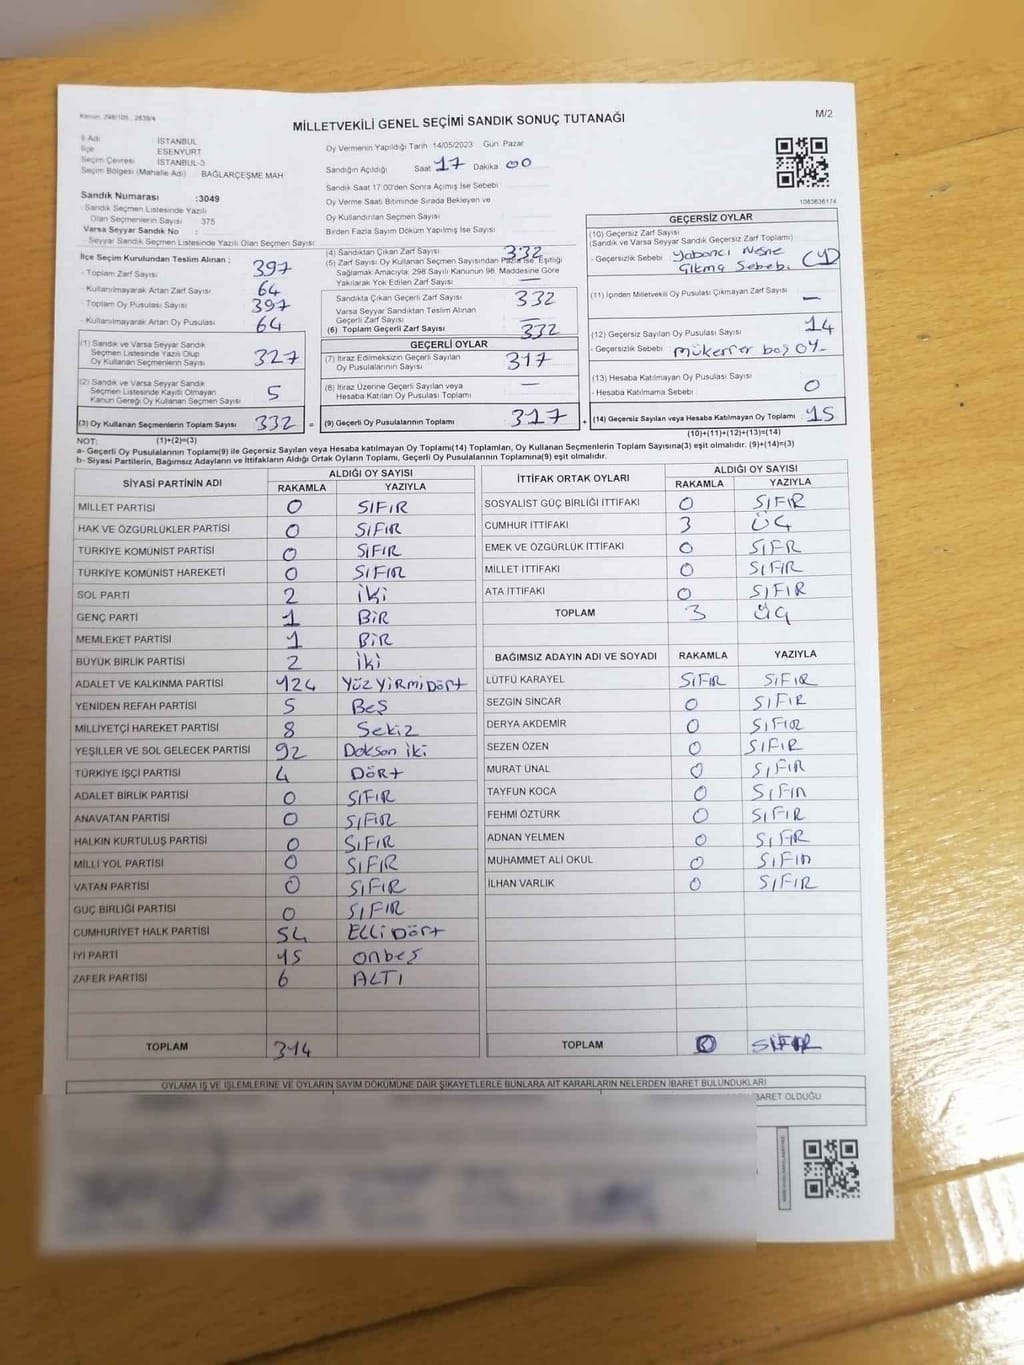 Kanun: 298/105, 2839/4
MİLLETVEKİLİ GENEL SEÇİMİ SANDIK SONUÇ TUTANAĞI
M/2
İl Adı İSTANBUL
İlçe ESENYURT
Seçim Çevresi İSTANBUL-3
Seçim Bölgesi (Mahalle Adı) BAĞLARÇEŞME MAH
Sandık Numarası :3049
- Sandık Seçmen Listesinde Yazılı
Olan Seçmenlerin Sayısı 375
Varsa Seyyar Sandık No :
- Seyyar Sandık Seçmen Listesinde Yazılı Olan Seçmen Sayısı:
Oy Vermenin Yapıldığı Tarih 14/05/2023 Gün Pazar
Sandığın Açıldığı Saat 17 Dakika 00
Sandık Saat 17.00'den Sonra Açılmış İse Sebebi
Oy Verme Saati Bitiminde Sırada Bekleyen ve
Oy Kullandırılan Seçmen Sayısı
Birden Fazla Sayım Döküm Yapılmış İse Sayısı
1083636174
İlçe Seçim Kurulundan Teslim Alınan ;
- Toplam Zarf Sayısı 397
- Kullanılmayarak Artan Zarf Sayısı 64
- Toplam Oy Pusulası Sayısı 397
- Kullanılmayarak Artan Oy Pusulası 64
(1) Sandık ve Varsa Seyyar Sandık
Seçmen Listesinde Yazılı Olup
Oy Kullanan Seçmenlerin Sayısı 327
(2) Sandık ve Varsa Seyyar Sandık
Seçmen Listesinde Kayıtlı Olmayan
Kanun Gereği Oy Kullanan Seçmen Sayısı 5
(3) Oy Kullanan Seçmenlerin Toplam Sayısı 332 =
(4) Sandıktan Çıkan Zarf Sayısı 332
(5) Zarf Sayısı Oy Kullanan Seçmen Sayısından Fazla İse, Eşitliği
Sağlamak Amacıyla; 298 Sayılı Kanunun 98. Maddesine Göre
Yakılarak Yok Edilen Zarf Sayısı —
Sandıkta Çıkan Geçerli Zarf Sayısı 332
Varsa Seyyar Sandıktan Teslim Alınan
Geçerli Zarf Sayısı —
(6) Toplam Geçerli Zarf Sayısı 332
GEÇERLİ OYLAR
(7) İtiraz Edilmeksizin Geçerli Sayılan
Oy Pusulalarının Sayısı 317
(8) İtiraz Üzerine Geçerli Sayılan veya
Hesaba Katılan Oy Pusulası Toplamı —
(9) Geçerli Oy Pusulalarının Toplamı 317 +
GEÇERSİZ OYLAR
(10) Geçersiz Zarf Sayısı
(Sandık ve Varsa Seyyar Sandık Geçersiz Zarf Toplamı)
- Geçersizlik Sebebi Yabancı Nesne
Çıkma Sebebi. (1)
(11) İçinden Milletvekili Oy Pusulası Çıkmayan Zarf Sayısı —
(12) Geçersiz Sayılan Oy Pusulası Sayısı 14
- Geçersizlik Sebebi mükerrer boş oy-
(13) Hesaba Katılmayan Oy Pusulası Sayısı
- Hesaba Katılmama Sebebi 0
(14) Geçersiz Sayılan veya Hesaba Katılmayan Oy Toplamı 15
NOT: (1)+(2)=(3) (10)+(11)+(12)+(13)=(14)
a- Geçerli Oy Pusulalarının Toplamı(9) ile Geçersiz Sayılan veya Hesaba katılmayan Oy Toplamı(14) Toplamları, Oy Kullanan Seçmenlerin Toplam Sayısına(3) eşit olmalıdır. (9)+(14)=(3)
b- Siyasi Partilerin, Bağımsız Adayların ve İttifakların Aldığı Ortak Oyların Toplamı, Geçerli Oy Pusulalarının Toplamına(9) eşit olmalıdır.
SİYASİ PARTİNİN ADI ALDIĞI OY SAYISI
RAKAMLA YAZIYLA
MİLLET PARTİSİ 0 SIFIR
HAK VE ÖZGÜRLÜKLER PARTİSİ 0 SIFIR
TÜRKİYE KOMÜNİST PARTİSİ 0 SIFIR
TÜRKİYE KOMÜNİST HAREKETİ 0 SIFIR
SOL PARTİ 2 İKİ
GENÇ PARTİ 1 BİR
MEMLEKET PARTİSİ 1 BİR
BÜYÜK BİRLİK PARTİSİ 2 İKİ
ADALET VE KALKINMA PARTİSİ 124 YÜZ YİRMİ DÖRT
YENİDEN REFAH PARTİSİ 5 BEŞ
MİLLİYETÇİ HAREKET PARTİSİ 8 SEKİZ
YEŞİLLER VE SOL GELECEK PARTİSİ 92 Doksan iki
TÜRKİYE İŞÇİ PARTİSİ 4 DÖRT
ADALET BİRLİK PARTİSİ 0 SIFIR
ANAVATAN PARTİSİ 0 SIFIR
HALKIN KURTULUŞ PARTİSİ 0 SIFIR
MİLLİ YOL PARTİSİ 0 SIFIR
VATAN PARTİSİ 0 SIFIR
GÜÇ BİRLİĞİ PARTİSİ 0 SIFIR
CUMHURİYET HALK PARTİSİ 54 ELLİ DÖRT
İYİ PARTİ 15 onbeş
ZAFER PARTİSİ 6 ALTI
TOPLAM 314
İTTİFAK ORTAK OYLARI ALDIĞI OY SAYISI
RAKAMLA YAZIYLA
SOSYALİST GÜÇ BİRLİĞİ İTTİFAKI 0 SIFIR
CUMHUR İTTİFAKI 3 ÜÇ
EMEK VE ÖZGÜRLÜK İTTİFAKI 0 SIFR
MİLLET İTTİFAKI 0 SIFIR
ATA İTTİFAKI 0 SIFIR
TOPLAM 3 ÜÇ
BAĞIMSIZ ADAYIN ADI VE SOYADI RAKAMLA YAZIYLA
LÜTFÜ KARAYEL SIFIR SIFIR
SEZGİN SİNCAR 0 SIFIR
DERYA AKDEMİR 0 SIFIR
SEZEN ÖZEN 0 SIFIR
MURAT ÜNAL 0 SIFIR
TAYFUN KOCA 0 SIFIR
FEHMİ ÖZTÜRK 0 SIFIR
ADNAN YELMEN 0 SIFIR
MUHAMMET ALİ OKUL 0 SIFIR
İLHAN VARLIK 0 SIFIR
TOPLAM 0 SIFIR
OYLAMA İŞ VE İŞLEMLERİNE VE OYLARIN SAYIM DÖKÜMÜNE DAİR ŞİKAYETLERLE BUNLARA AİT KARARLARIN NELERDEN İBARET BULUNDUKLARI
İBARET OLDUĞU